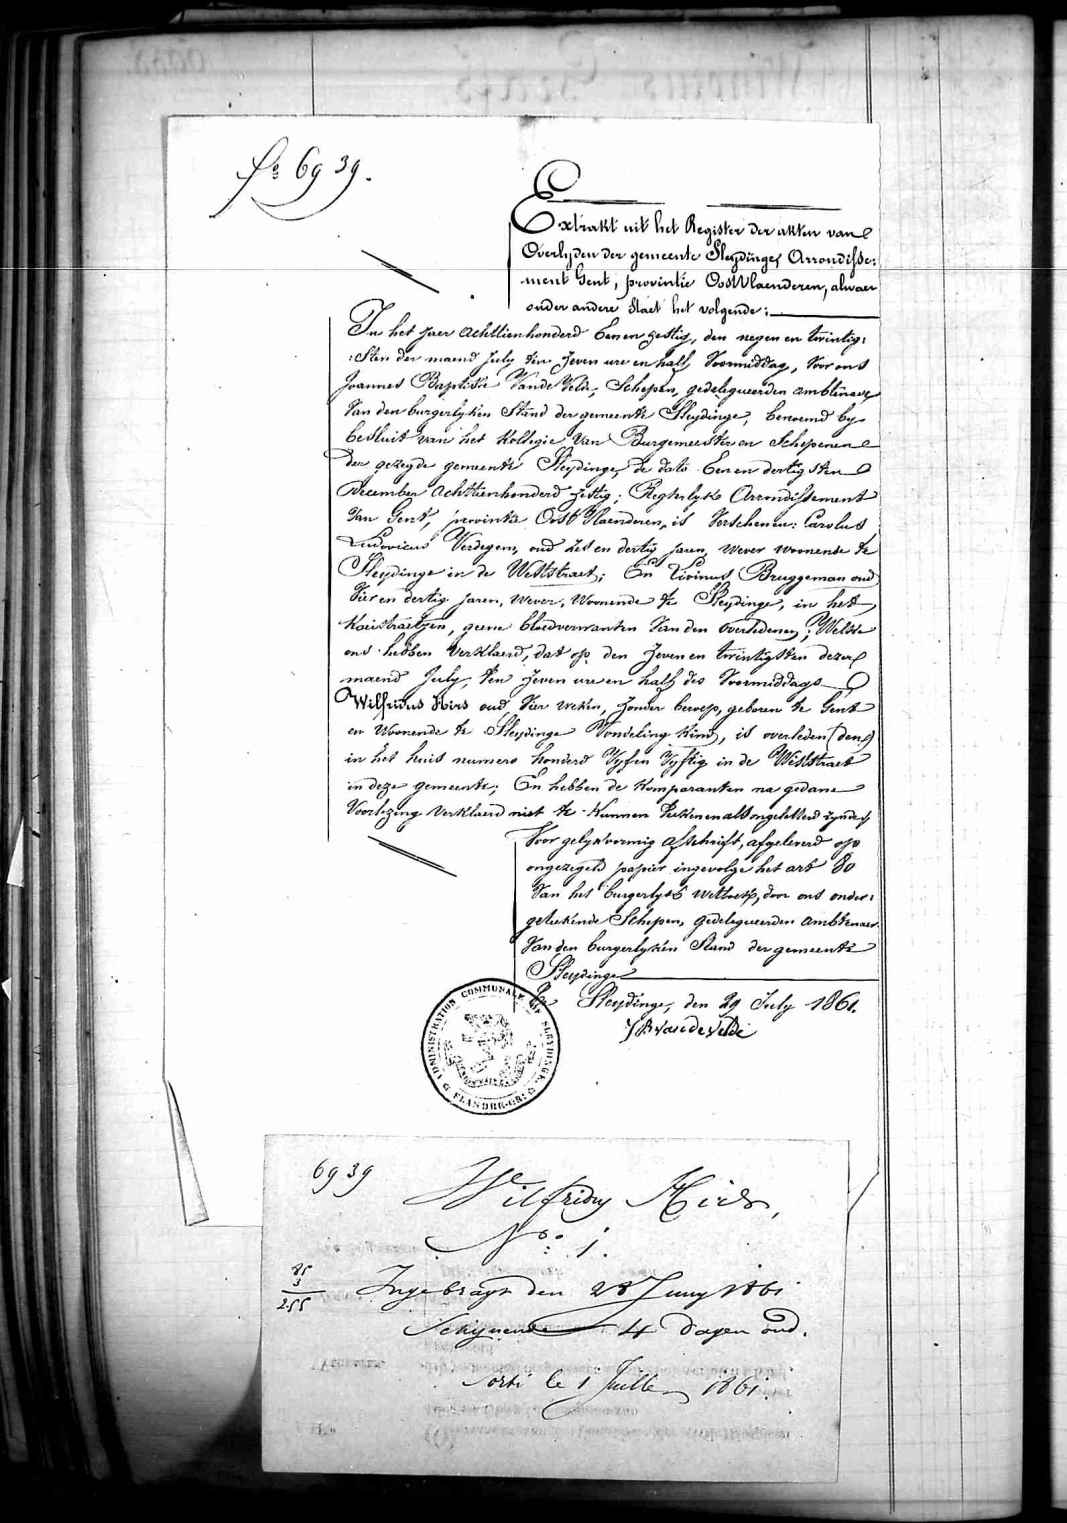 fo 6939.
Extrakt uit het Register der akten van
Overlyden der gemeente Sleydinge, Arrondisse:
ment Gent, provintie OostVlaenderen, alwaer
onder andere staet het volgende:
In het jaer achttienhonderd Eenenzestig, den negenentwintig:
:sten der maend July ten zeven ure en half Voormiddag, Voor ons
Joannes Baptiste VandeVelde, Schepen, gedelegueerden ambtenaer
Van den burgerlyken Stand der gemeente Sleydinge, benoemd by
besluit van het Kollegie Van Burgemeester en Schepenen
der gezeyde gemeente Sleydinge, de dato Eenendertigsten
December achttienhonderd zestig; Regterlyk Arrondissement
Van Gent, provintie OostVlaenderen, is Verschenen: Carolus
Ludovicus Verdegem, oud zesendertig jaren, wever woonende te
Sleydinge in de Weststraet; En Livinus Bruggeman oud
Vierendertig jaren, wever, Woonende te Sleydinge, in het
Kaistraetjen, geene bloedverwanten Van den overledenen; Welke
ons hebben Verklaerd, dat op den zevenentwintigsten dezer
maend July, ten zeven ure en half des Voormiddags
Wilfridus Hirs oud Vier weken, zonder beroep, geboren te Gent
en woonende te Sleydinge Vondeling Kind, is overleden (den)
in het huis numero honderd Vyfen Vyftig in de Weststraet
in deze gemeente; En hebben de Komparanten na gedane
Voorlezing Verklaerd niet te Kunnen teekenen als ongeletterd zynde
Voor gelykvormig afschrift, afgeleverd op
ongezegeld papier ingevolge het art 80
Van het burgerlyk Wetboek, door ons onder:
geteekende Schepen, gedelegueerden ambtenaer
Van den burgerlyken Stand der gemeente
Sleydinge
Te Sleydinge, den 29 July 1861.
JB VandeVelde
ADMINISTRATION COMMUNALE DE SLEYDINGE
FLANDRE-OR:
6939
Wilfridus Hirs,
No: 1.
85
3
255
Ingebragt den 28 Juny 1861
Schynende 4 dagen oud.
Sorti le 1 Juillet 1861.